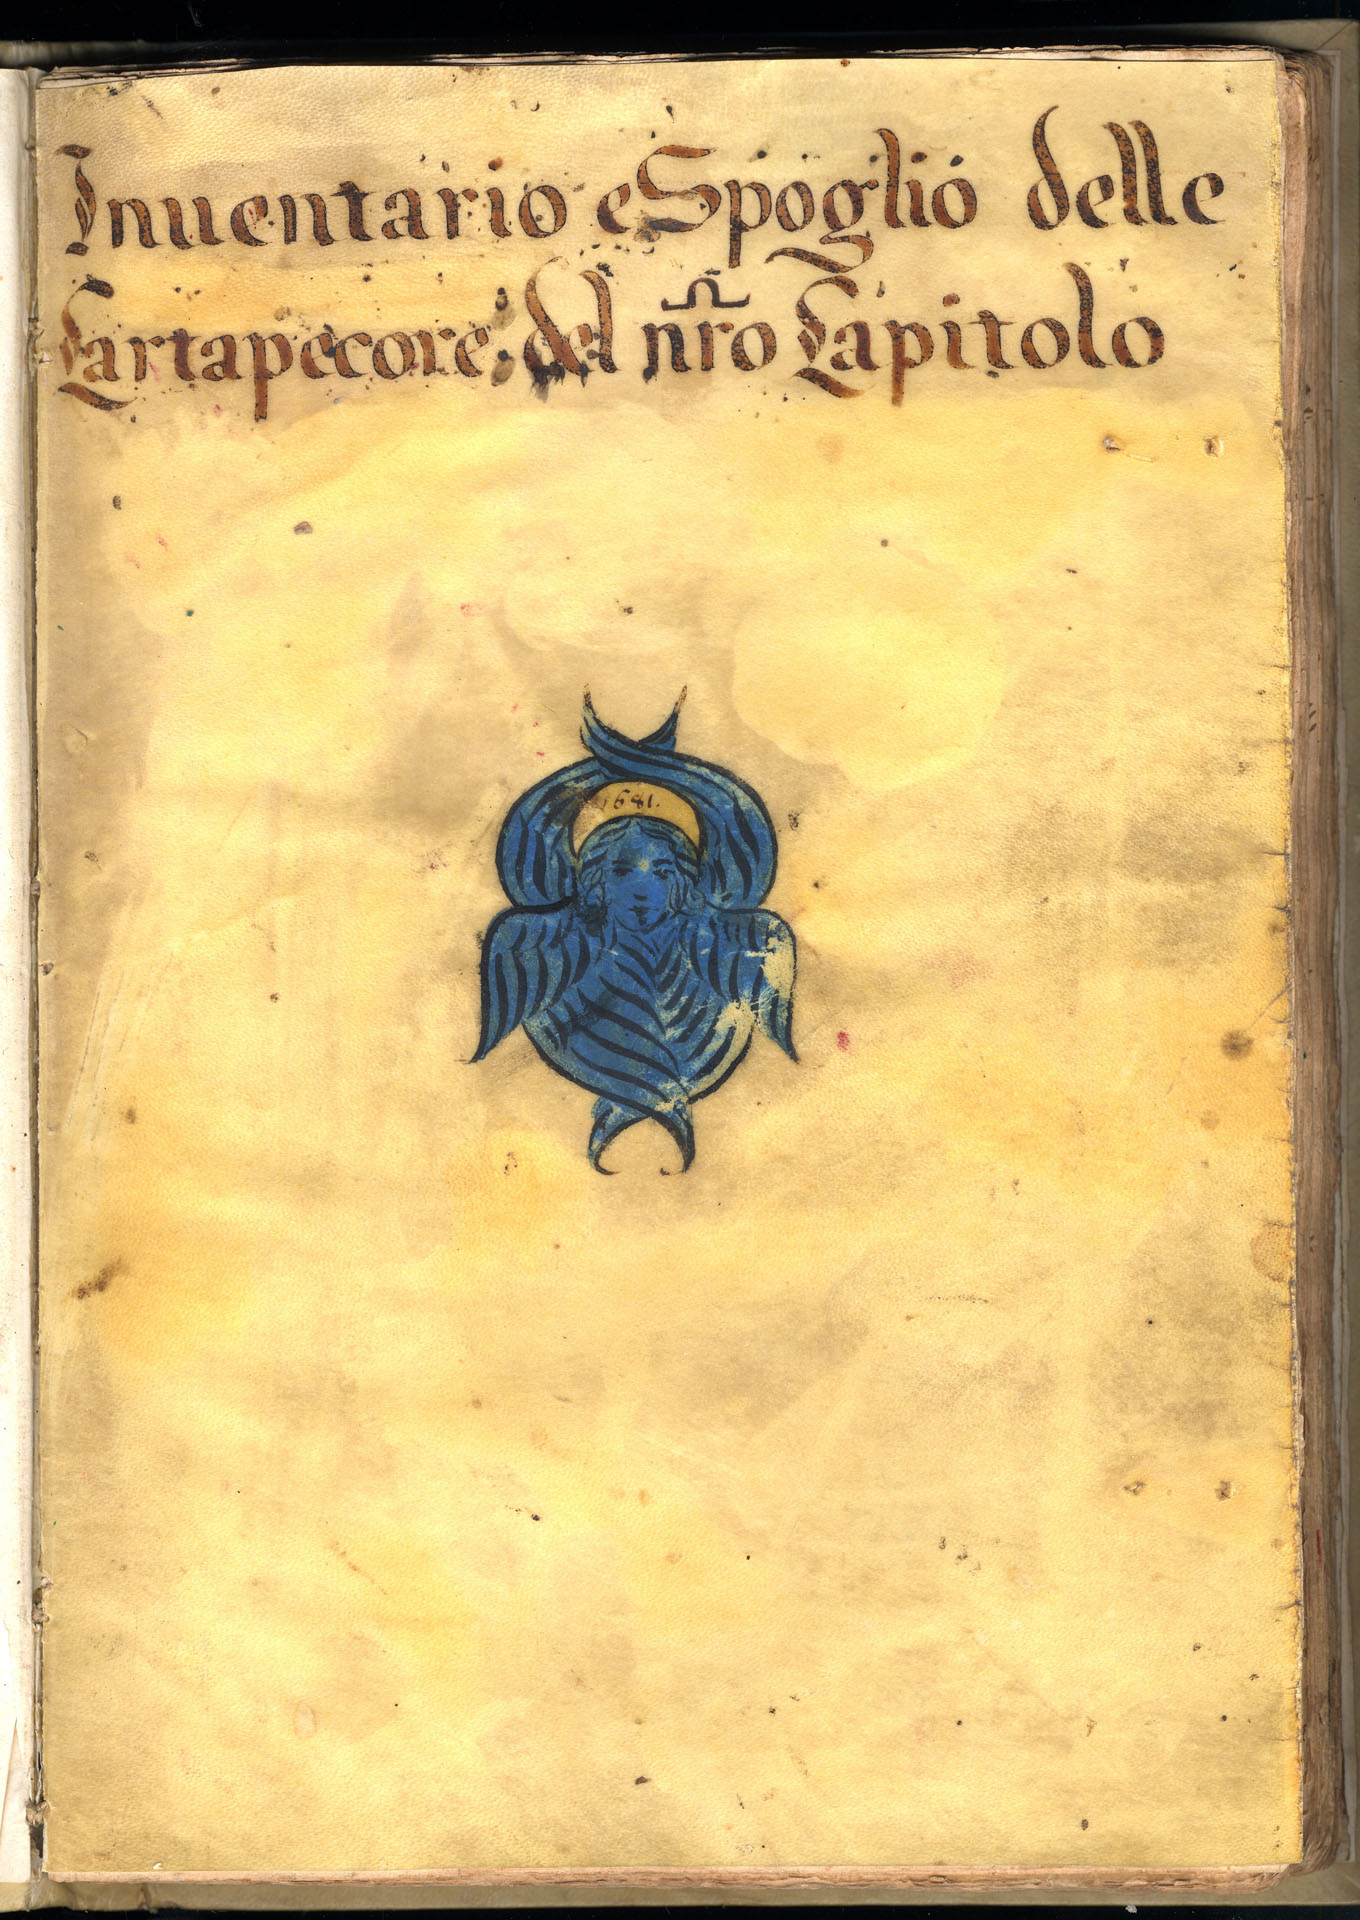 Inuentario e Spoglio delle
Cartapecore del nr̃o Capitolo
1681.